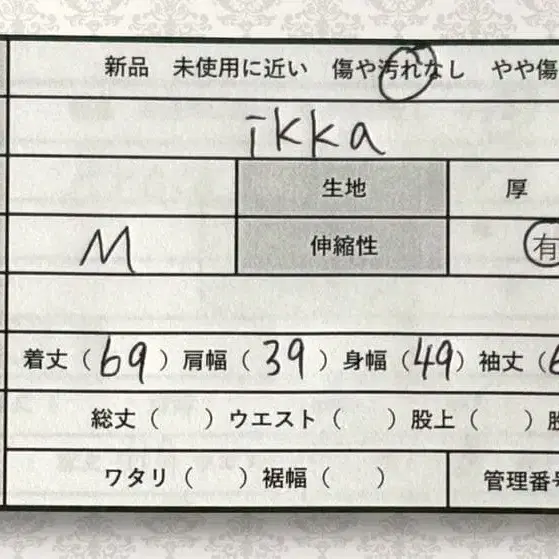 新品 未使用に近い 傷や汚れなし やや傷
ikka
生地 厚
M 伸縮性 有
着丈（69）肩幅（39）身幅（49）袖丈（6
総丈（ ）ウエスト（ ）股上（ ）股
ワタリ（ ）裾幅（ ） 管理番号